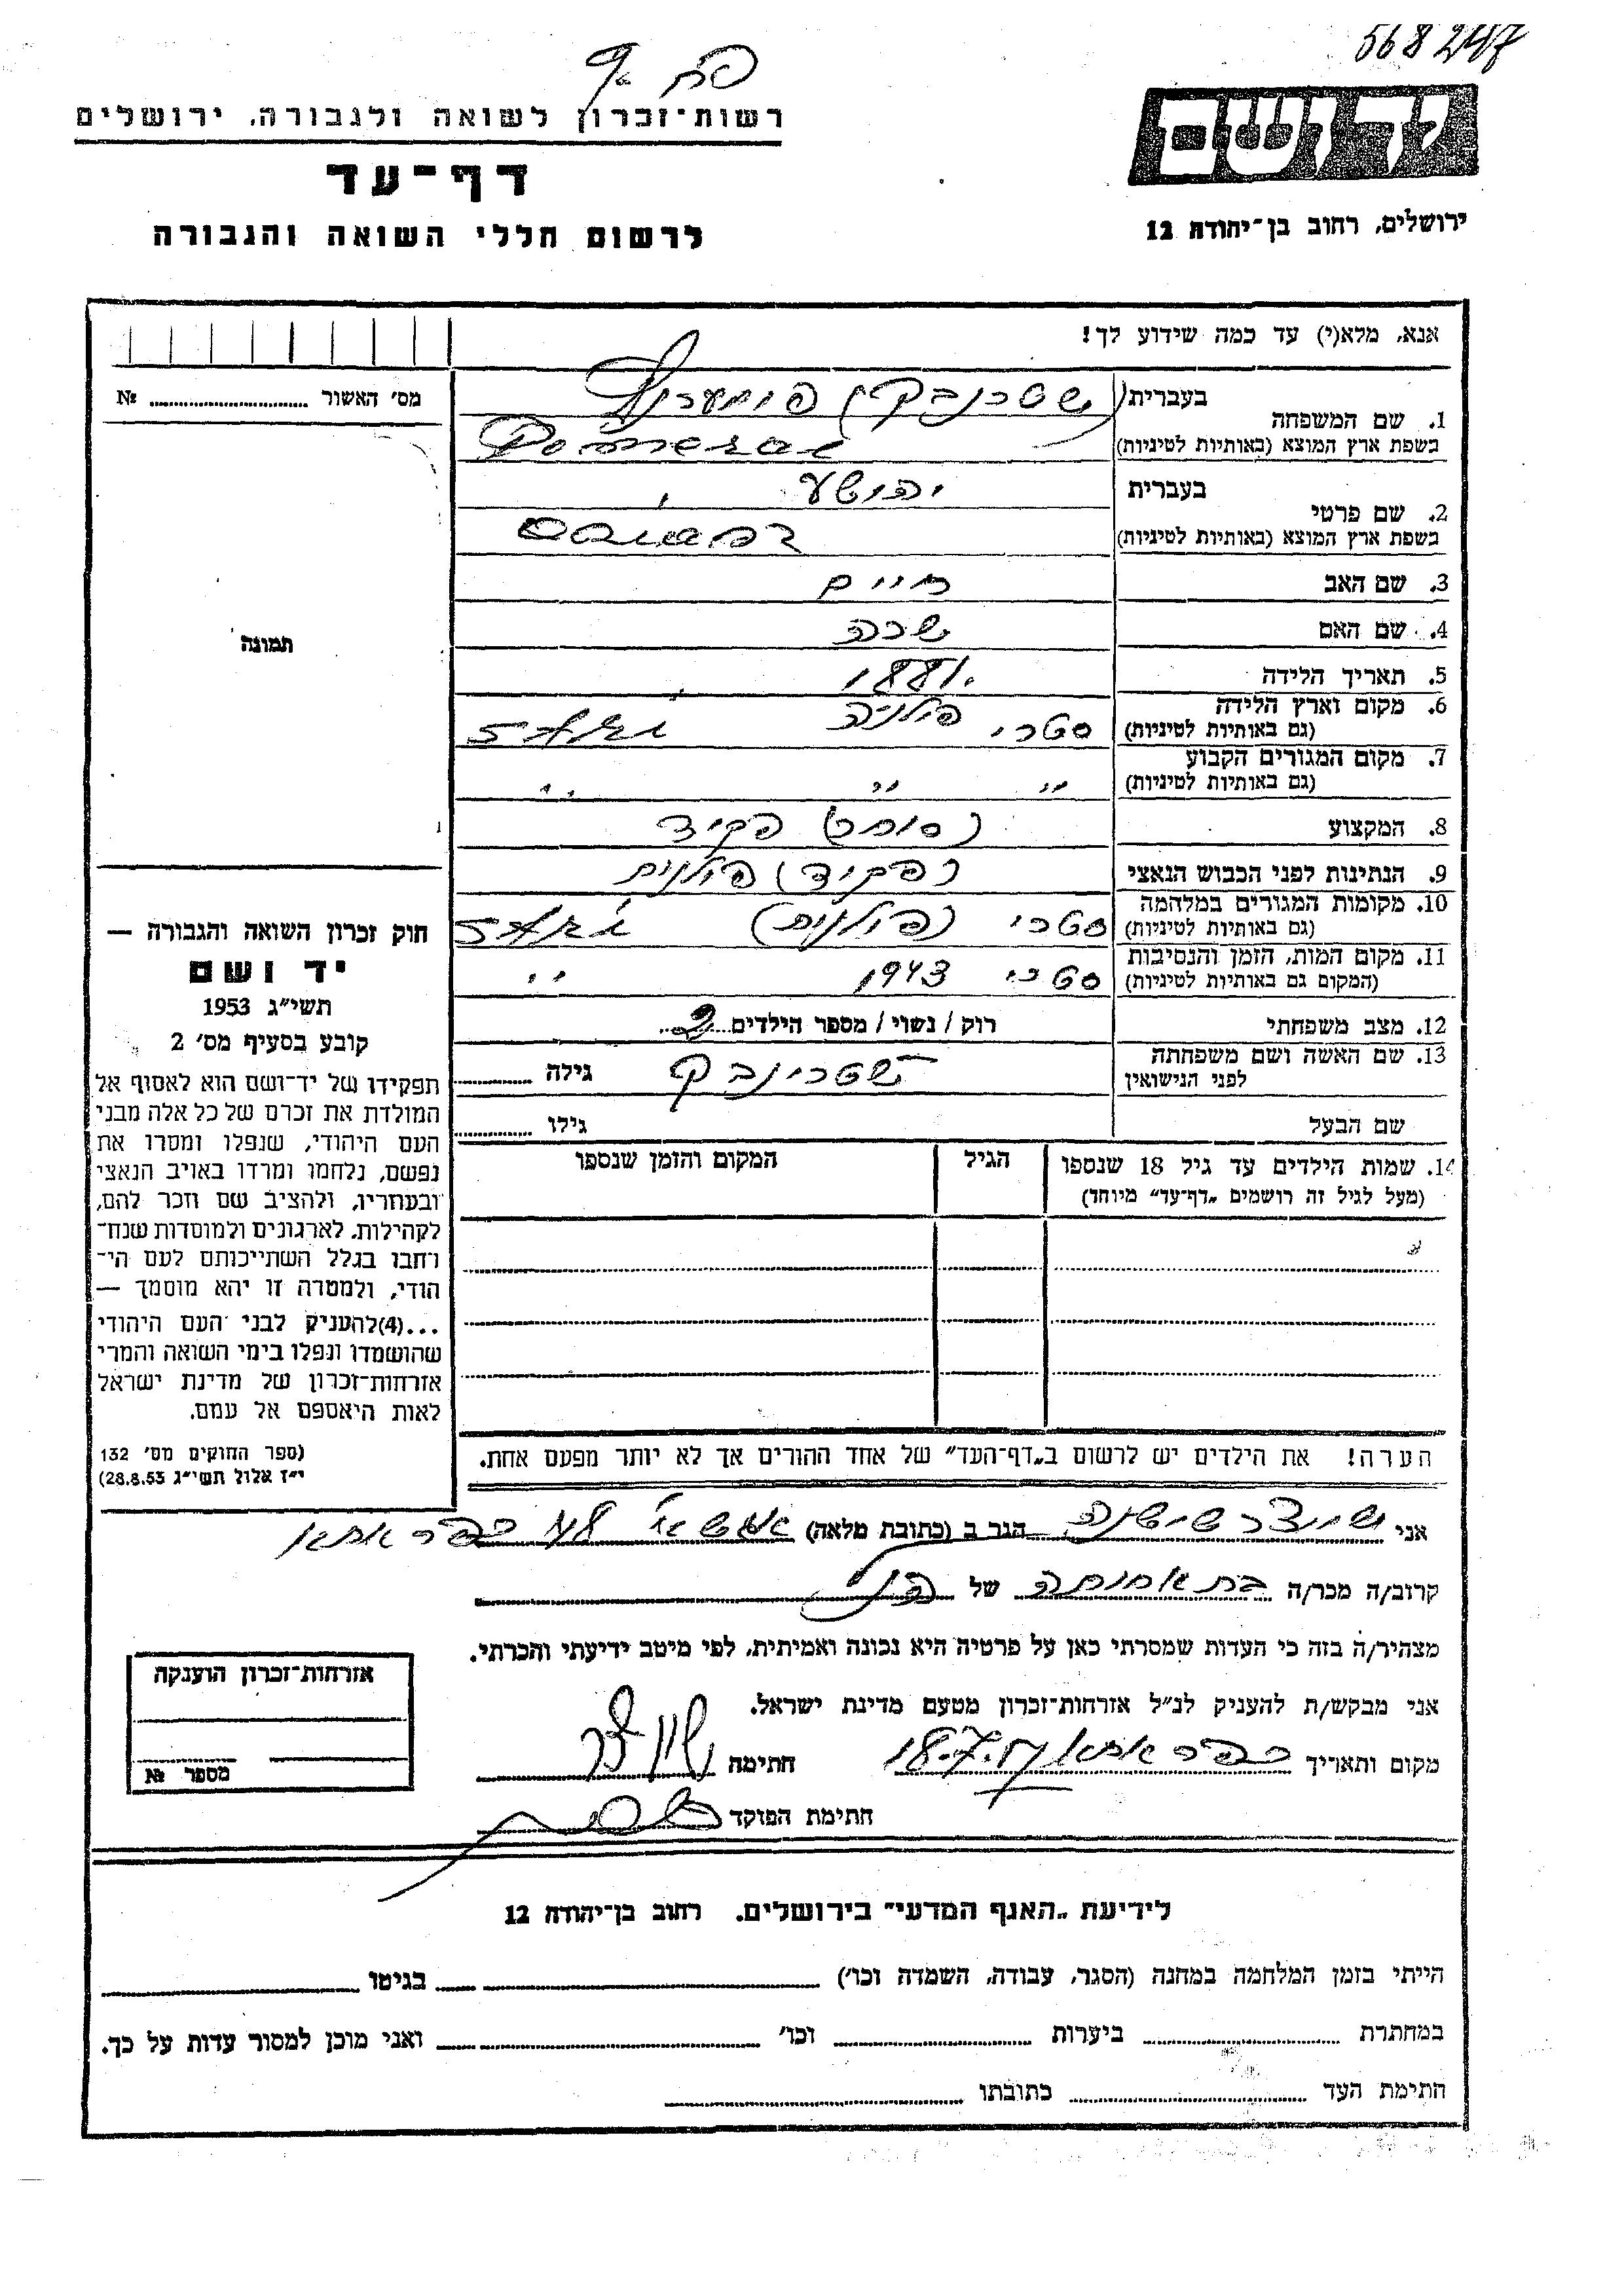 568247
יד ושם
ירושלים, רחוב בן־יהודה 12
רשות־זכרון לשואה ולגבורה, ירושלים
דף־עד
לרשום חללי השואה והגבורה
אנא, מלא(י) עד כמה שידוע לך!
מס׳ האשור ........ №
1. שם המשפחה
בעברית (שטרנבק)
בשפת ארץ המוצא (באותיות לטיניות)
2. שם פרטי
בעברית יהושע
בשפת ארץ המוצא (באותיות לטיניות)
3. שם האב חיים
4. שם האם שרה
5. תאריך הלידה 1881
6. מקום וארץ הלידה
(גם באותיות לטיניות) סטרי פולניה
7. מקום המגורים הקבוע
(גם באותיות לטיניות) " " "
8. המקצוע (סוחר) פקיד
9. הנתינות לפני הכבוש הנאצי (פקיד) פולנית
10. מקומות המגורים במלחמה
(גם באותיות לטיניות) סטרי (פולנית)
11. מקום המות, הזמן והנסיבות
(המקום גם באותיות לטיניות) סטרי 1943 "
12. מצב משפחתי רוק / נשוי / מספר הילדים 2
13. שם האשה ושם משפחתה
לפני הנישואין שטרינבק גילה ........
שם הבעל גילו ........
14. שמות הילדים עד גיל 18 שנספו
(מעל לגיל זה רושמים „דף־עד״ מיוחד)
הגיל
המקום והזמן שנספו
הערה! את הילדים יש לרשום ב„דף־העד״ של אחד ההורים אך לא יותר מפעם אחת.
תמונה
חוק זכרון השואה והגבורה —
יד ושם
תשי״ג 1953
קובע בסעיף מס׳ 2
תפקידו של יד־ושם הוא לאסוף אל
המולדת את זכרם של כל אלה מבני
העם היהודי, שנפלו ומסרו את
נפשם, נלחמו ומרדו באויב הנאצי
ובעוזריו, ולהציב שם וזכר להם,
לקהילות, לארגונים ולמוסדות שנח־
רבו בגלל השתייכותם לעם הי־
הודי, ולמטרה זו יהא מוסמך —
...(4)להעניק לבני העם היהודי
שהושמדו ונפלו בימי השואה והמרי
אזרחות־זכרון של מדינת ישראל
לאות היאספם אל עמם.
(ספר החוקים מס׳ 132
י״ז אלול תשי״ג 28.8.53)
אני שניצר שושנה הגר ב (כתובת מלאה) כפר אתא
קרוב/ה מכר/ה בת אחותה של
מצהיר/ה בזה כי העדות שמסרתי כאן על פרטיה היא נכונה ואמיתית, לפי מיטב ידיעתי והכרתי.
אני מבקש/ת להעניק לנ״ל אזרחות־זכרון מטעם מדינת ישראל.
מקום ותאריך כפר אתא חתימה
חתימת הפוקד
אזרחות־זכרון הוענקה
מספר №
לידיעת „האגף המדעי״ בירושלים, רחוב בן־יהודה 12
הייתי בזמן המלחמה במחנה (הסגר, עבודה, השמדה וכו׳) ........ בגיטו ........
במחתרת ........ ביערות ........ וכו׳ ........ ואני מוכן למסור עדות על כך.
חתימת העד ........ כתובתו ........